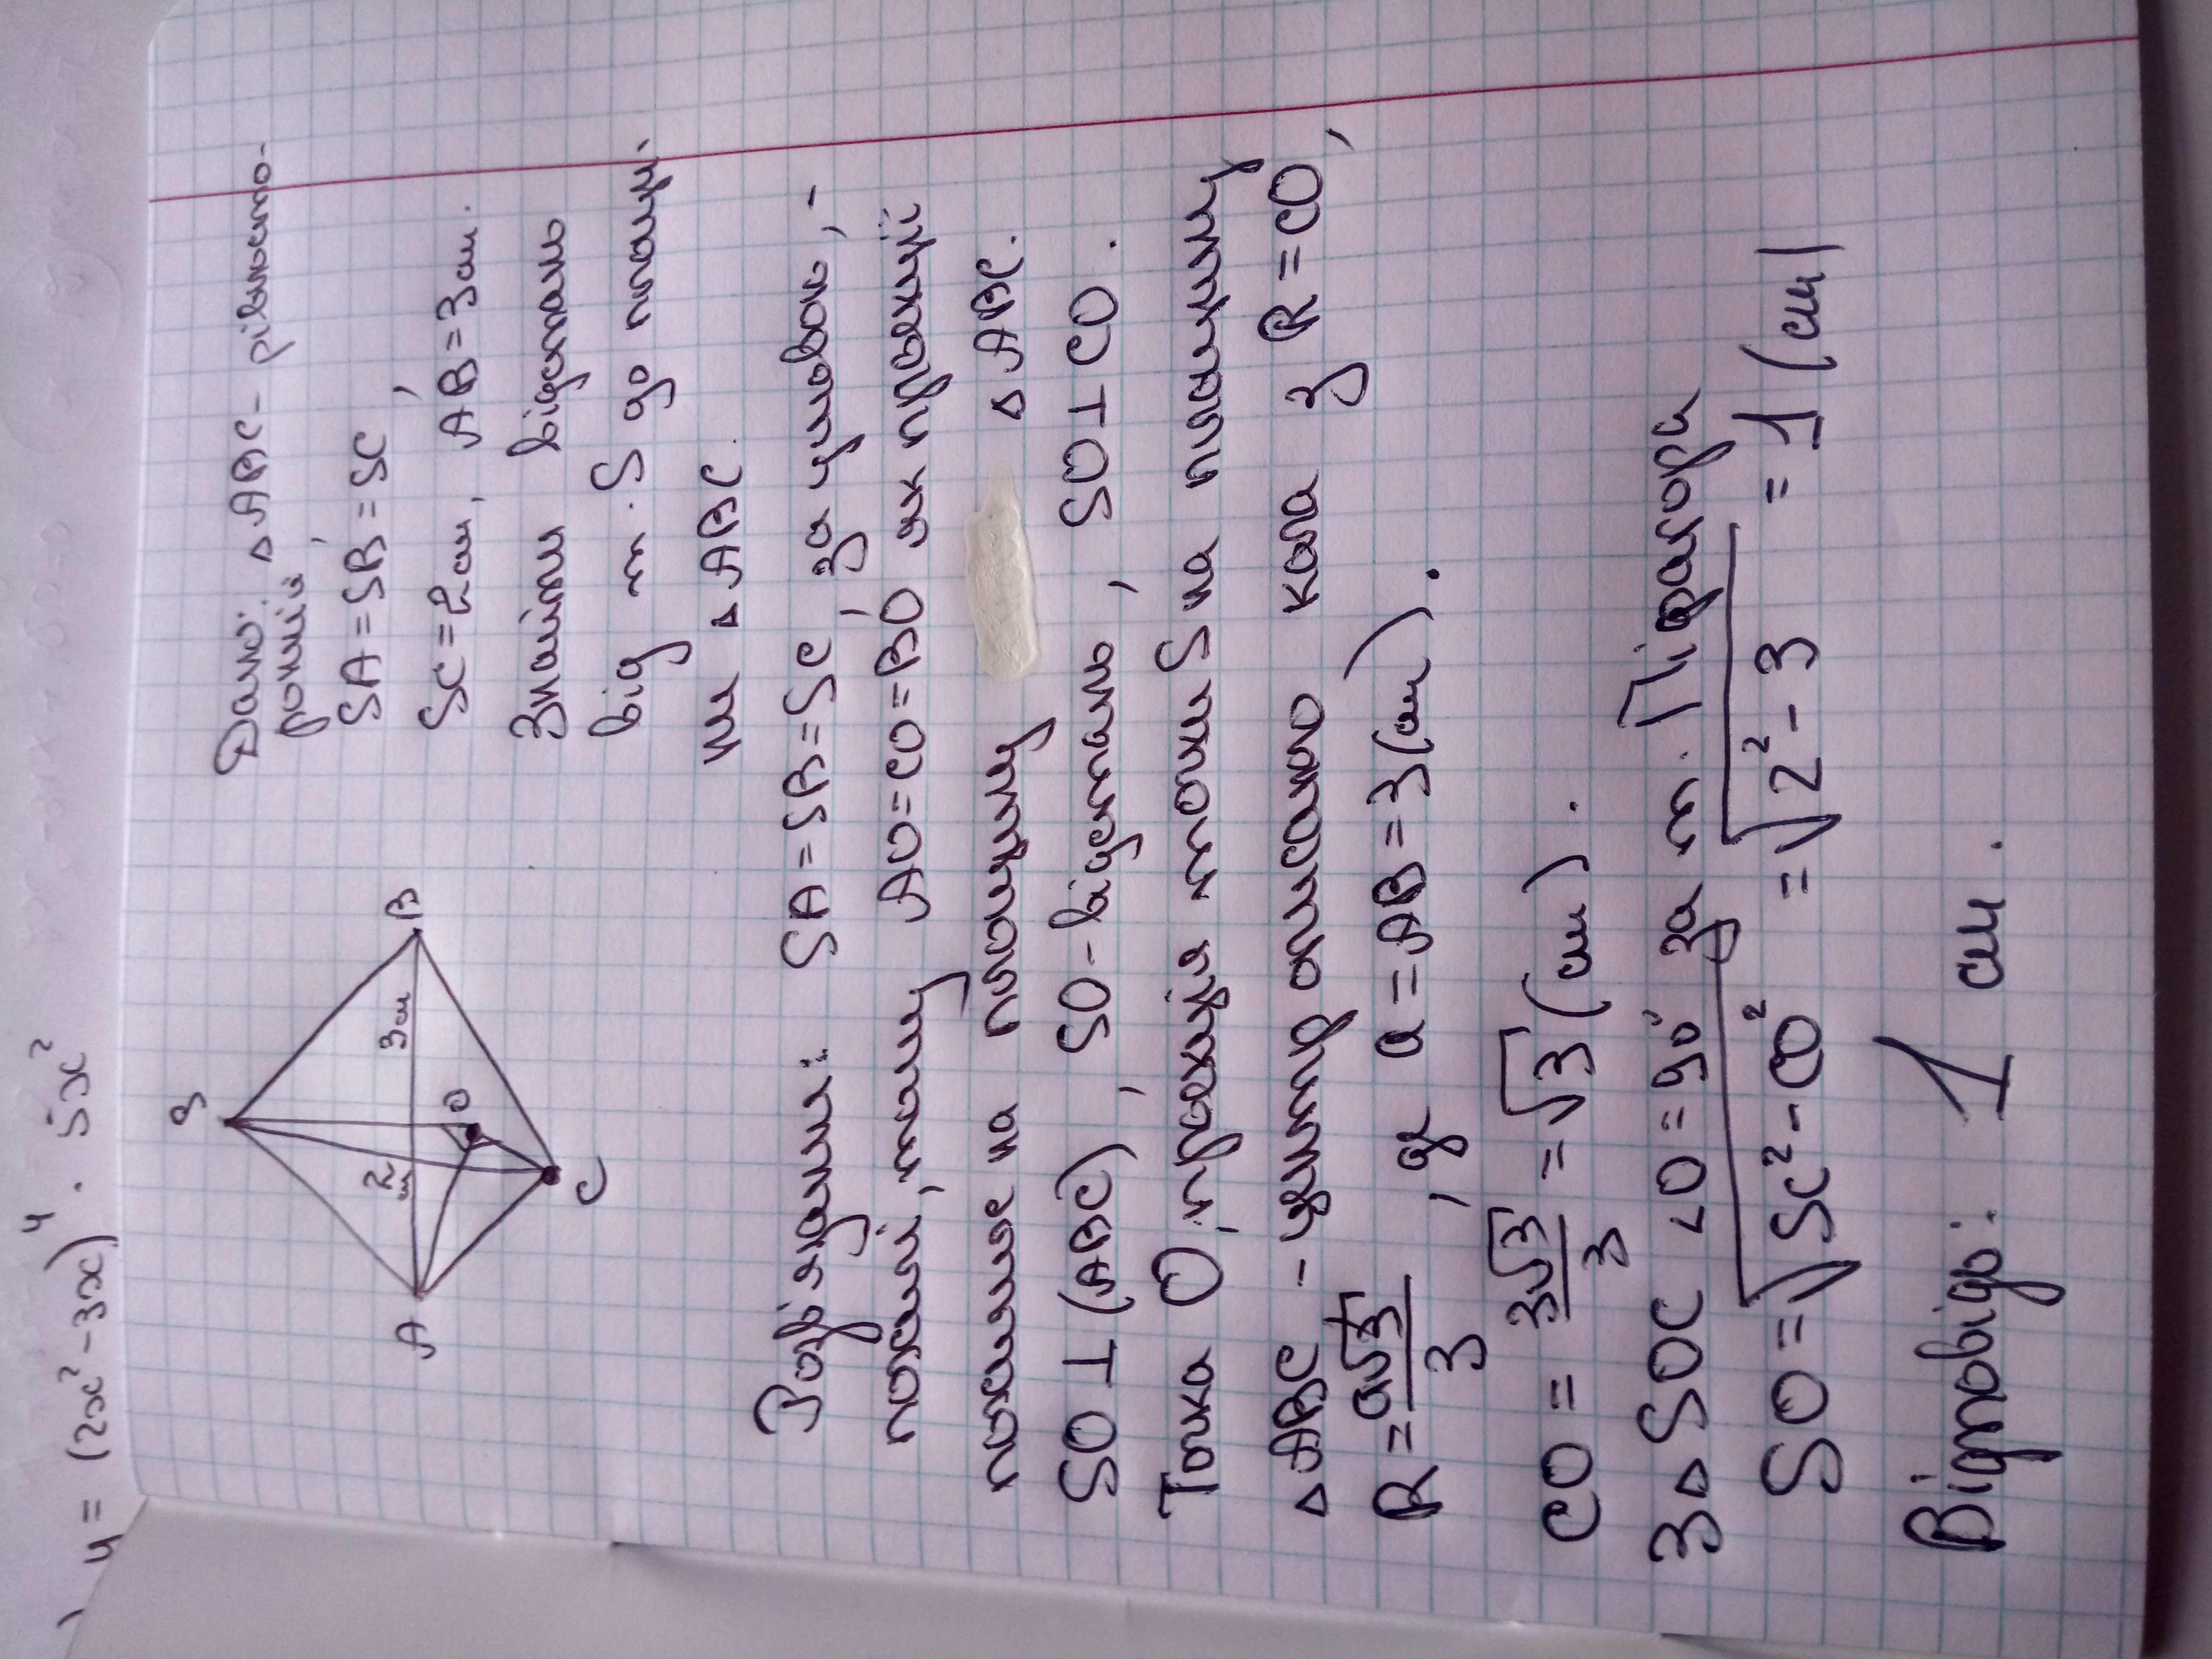 y = (2x² - 3x)⁴ · 5x²
S
A
B
C
O
2 см
3 см
Дано: △ABC - рівносто-
ронній,
SA = SB = SC,
SC = 2 см, AB = 3 см.
Знайти відстань
від т. S до площ.
△ABC.
Розв'язання: SA = SB = SC, за умовою, -
похилі, тому AO = CO = BO як проекції
похилої на площину △ABC.
SO ⊥ (ABC), SO - відстань, SO ⊥ CO.
Точка O, проекція точки S на площину
△ABC - центр описаного кола з R = CO,
R = a√3/3, де a = AB = 3 (см).
CO = 3√3/3 = √3 (см).
З △SOC ∠O = 90° за т. Піфагора
SO = √SC² - CO² = √2² - 3 = 1 (см)
Відповідь: 1 см.